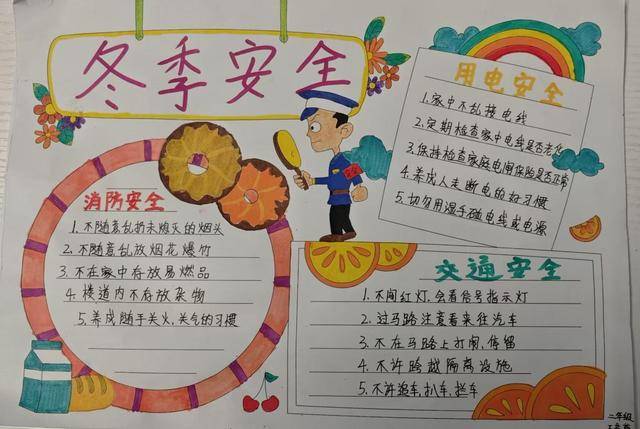 冬季安全
消防安全
1.不随意乱扔未熄灭的烟头
2.不随意乱放烟花爆竹
3.不在家中存放易燃品
4.楼道内不存放杂物
5.养成随手关火,关气的习惯
用电安全
1.家中不乱接电线
2.定期检查家中电线是否老化
3.保持检查家庭电闸保险是否正常
4.养成人走断电的好习惯
5.切勿用湿手碰电线或电源
交通安全
1.不闯红灯,会看信号指示灯
2.过马路注意看来往汽车
3.不在马路上打闹,停留
4.不许跨越隔离设施
5.不许追车,扒车,拦车
二年级